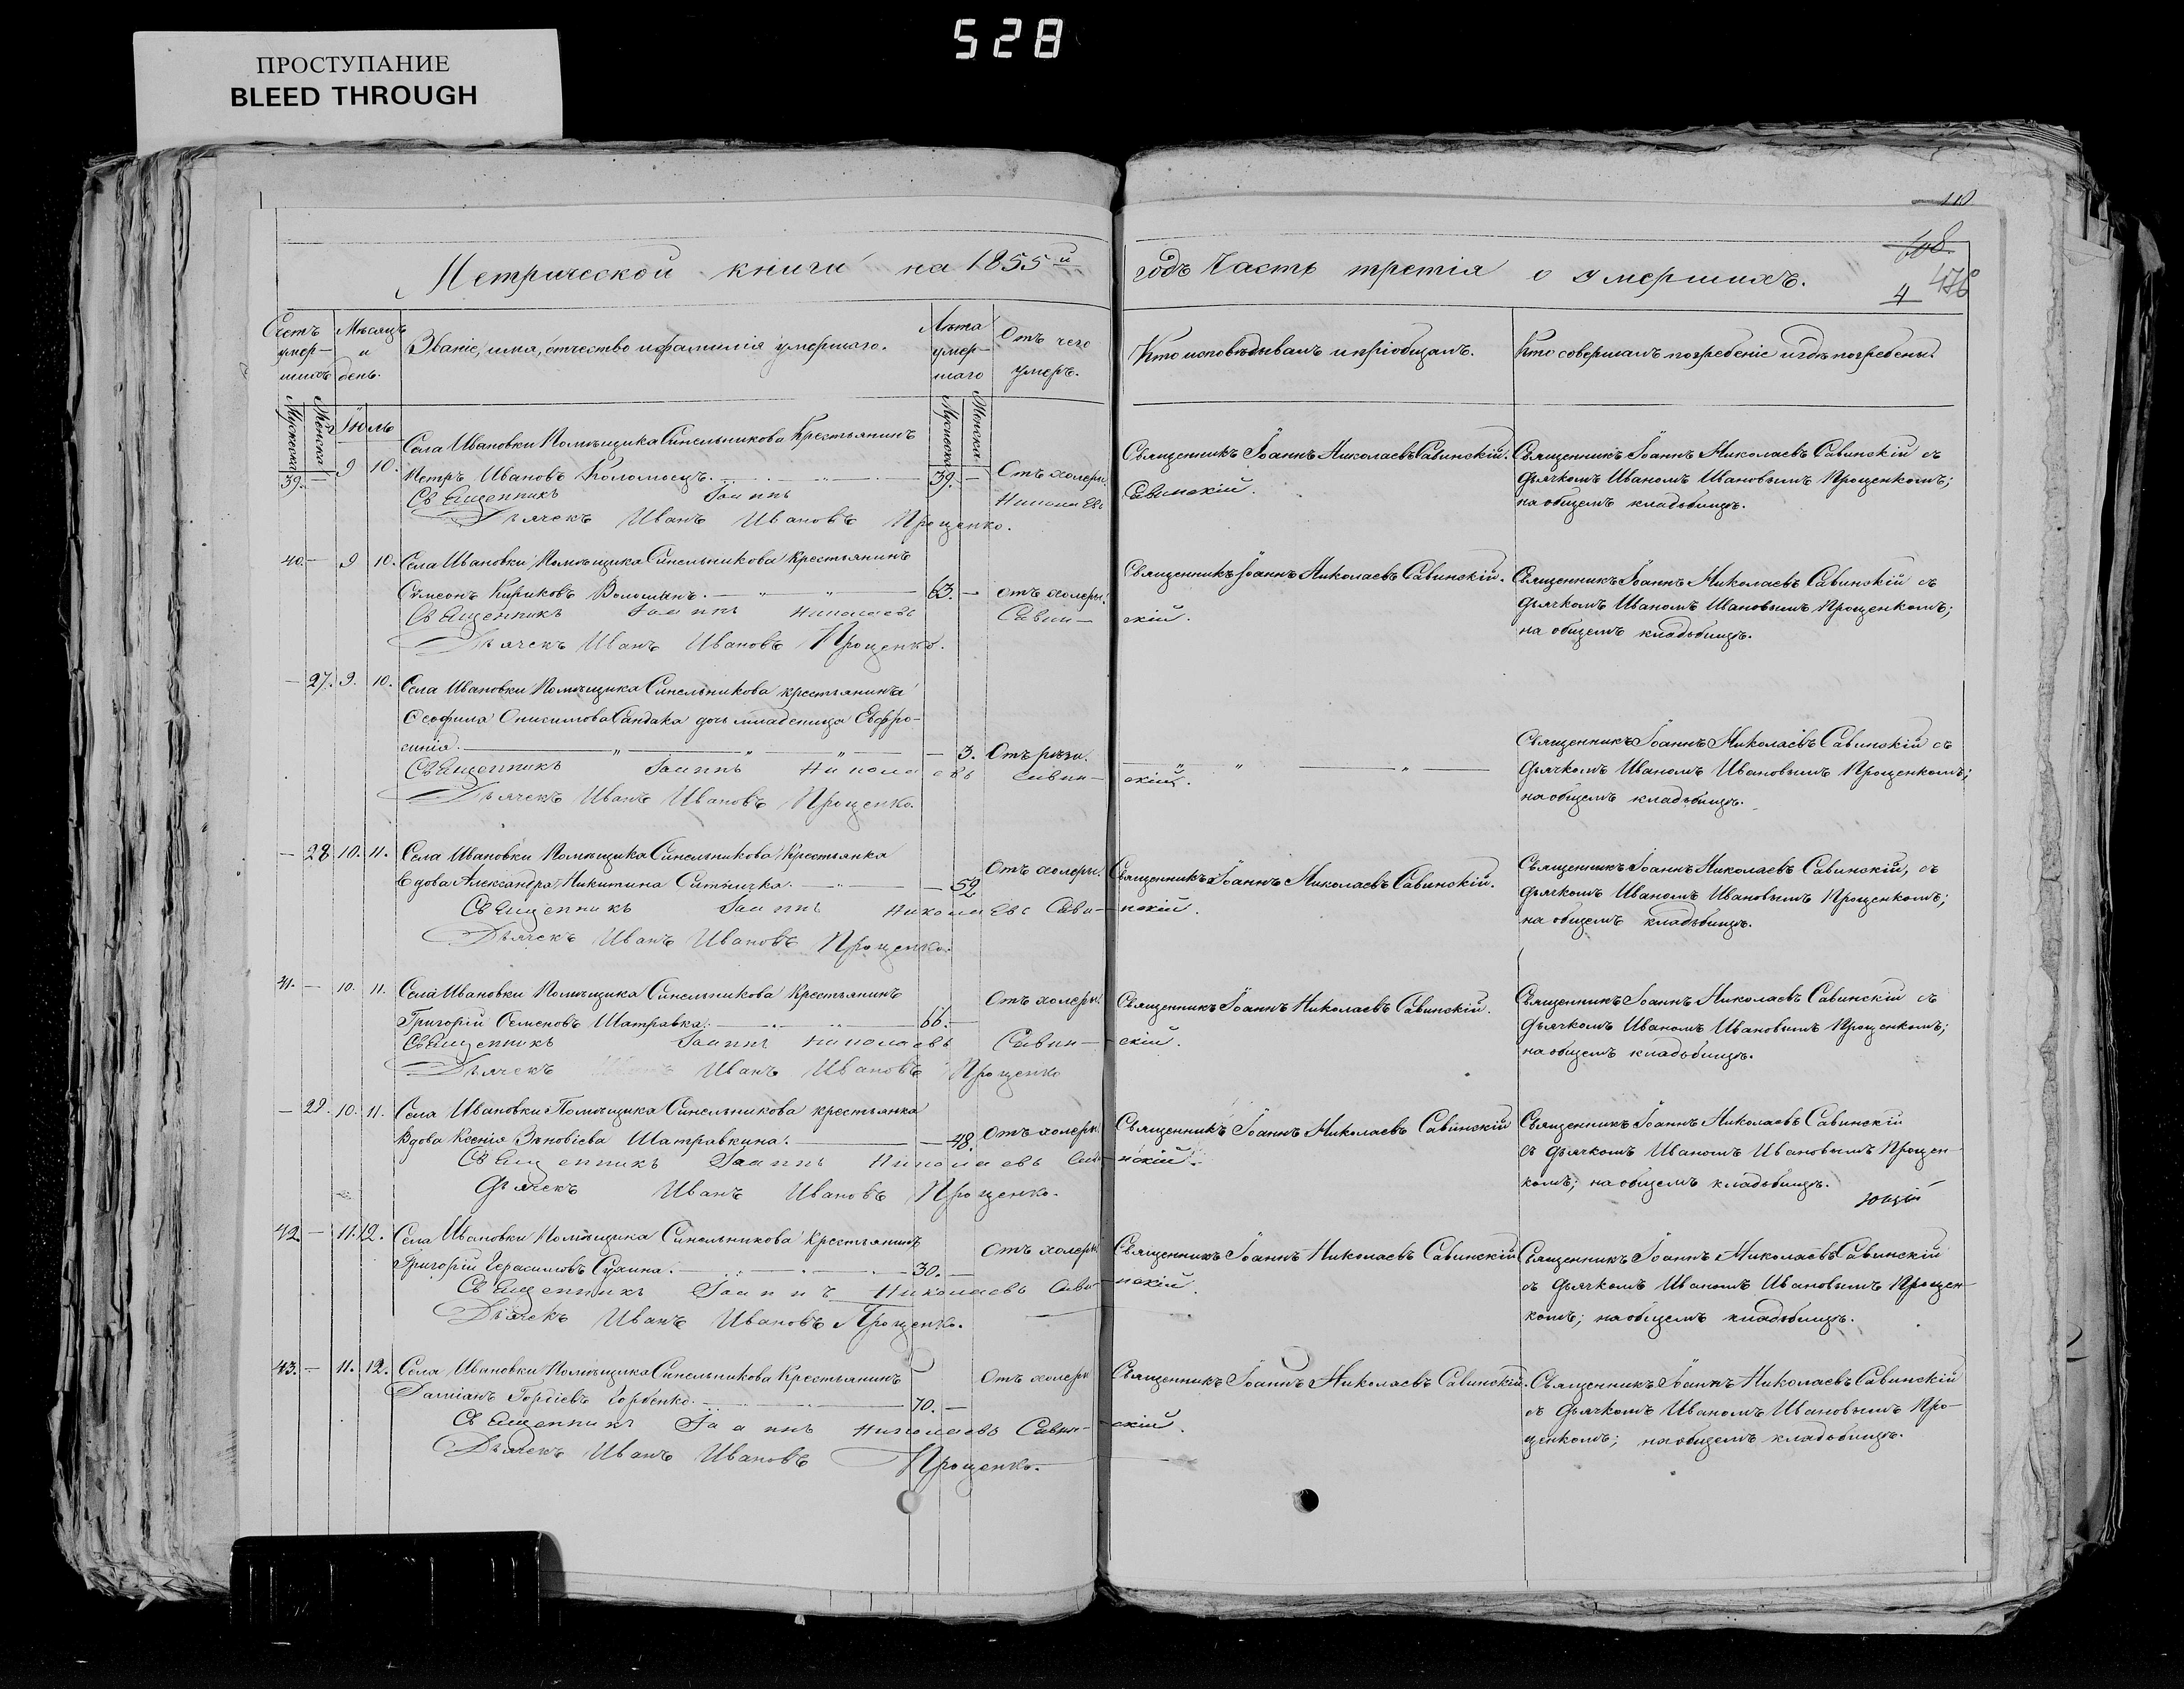 528
ПРОСТУПАНИЕ
BLEED THROUGH
110
108
476
4
Метрической книги на 1855й
годъ Часть третія о умершихъ.
Счетъ умершихъ
Мѣсяцъ и день.
Званіе, имя, отчество и фамилія умершаго.
Лѣта умершаго
Отъ чего умеръ.
Кто исповѣдывалъ и пріобщалъ.
Кто совершалъ погребеніе и гдѣ погребены.
Мужеска
Женска
Іюль
Мужеска
Женска
Села Ивановки Помѣщика Синельникова Крестьянинъ
39. — 9 10. Петръ Ивановъ Коломоецъ. 39. — Отъ холеры.
Священникъ Іоаннъ Николаевъ Савинскій.
Дьячекъ Иванъ Ивановъ Прощенко.
Священникъ Іоаннъ Николаевъ Савинскій.
Священникъ Іоаннъ Николаевъ Савинскій съ
дьячкомъ Иваномъ Ивановымъ Прощенкомъ;
на общемъ кладбищѣ.
40. — 9 10. Села Ивановки Помѣщика Синельникова Крестьянинъ
Сѵмеонъ Кириковъ Волошанъ. 63. — отъ холеры.
Священникъ Іоаннъ Николаевъ Савинскій.
Дьячекъ Иванъ Ивановъ Прощенко.
Священникъ Іоаннъ Николаевъ Савинскій.
Священникъ Іоаннъ Николаевъ Савинскій съ
дьячкомъ Иваномъ Ивановымъ Прощенкомъ;
на общемъ кладбищѣ.
— 27. 9. 10. Села Ивановки Помѣщика Синельникова крестьянина
Ѳеофила Онисимова Сандака дочь младеница Евфро-
синія. — 3. Отъ рѣзи.
Священникъ Іоаннъ Николаевъ Савинскій.
Дьячекъ Иванъ Ивановъ Прощенко.
Священникъ Іоаннъ Николаевъ Савинскій съ
дьячкомъ Иваномъ Ивановымъ Прощенкомъ;
на общемъ кладбищѣ.
— 28 10. 11. Села Ивановки Помѣщика Синельникова Крестьянка
Вдова Александра Никитина Ситничка. — 52 Отъ холеры.
Священникъ Іоаннъ Николаевъ Савинскій.
Дьячекъ Иванъ Ивановъ Прощенко.
Священникъ Іоаннъ Николаевъ Савинскій.
Священникъ Іоаннъ Николаевъ Савинскій, съ
дьячкомъ Иваномъ Ивановымъ Прощенкомъ;
на общемъ кладбищѣ.
41. — 10. 11. Села Ивановки Помѣщика Синельникова Крестьянинъ
Григорій Семеновъ Шатравка. 66. — Отъ холеры.
Священникъ Іоаннъ Николаевъ Савинскій.
Дьячекъ Иванъ Ивановъ Прощенко
Священникъ Іоаннъ Николаевъ Савинскій.
Священникъ Іоаннъ Николаевъ Савинскій съ
дьячкомъ Иваномъ Ивановымъ Прощенкомъ;
на общемъ кладбищѣ.
— 29. 10. 11. Села Ивановки Помѣщика Синельникова крестьянка
Вдова Ксенія Зѣновіева Шатравкина. — 48. Отъ холеры.
Священникъ Іоаннъ Николаевъ Савинскій.
Дьячекъ Иванъ Ивановъ Прощенко.
Священникъ Іоаннъ Николаевъ Савинскій
Священникъ Іоаннъ Николаевъ Савинскій
съ дьячкомъ Иваномъ Ивановымъ Прощен-
комъ; на общемъ кладбищѣ.
42. — 11. 12. Села Ивановки Помѣщика Синельникова Крестьянинъ
Григорій Герасимовъ Сухина. 30. — Отъ холеры.
Священникъ Іоаннъ Николаевъ Савинскій.
Дьячекъ Иванъ Ивановъ Прощенко.
Священникъ Іоаннъ Николаевъ Савинскій
Священникъ Іоаннъ Николаевъ Савинскій
съ дьячкомъ Иваномъ Ивановымъ Прощен-
комъ; на общемъ кладбищѣ.
43. — 11. 12. Села Ивановки Помѣщика Синельникова Крестьянинъ
Даміанъ Гордіевъ Горбенко. 70. — Отъ холеры
Священникъ Іоаннъ Николаевъ Савинскій.
Дьячекъ Иванъ Ивановъ Прощенко.
Священникъ Іоаннъ Николаевъ Савинскій.
Священникъ Іоаннъ Николаевъ Савинскій
съ дьячкомъ Иваномъ Ивановымъ Про-
щенкомъ; на общемъ кладбищѣ.